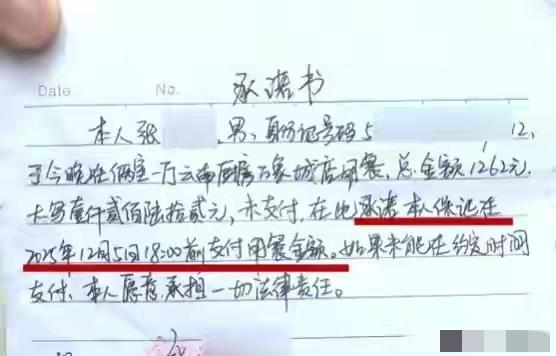 承诺书
Date No.
本人张 男、身份证号码5 12,
于今晚在 一厅云南厨房万象城店用餐、总金额1262元.
大写壹仟贰佰陆拾贰元,未支付,在此承诺本人保证在
2025年12月5日18:00前支付用餐金额。如果未能在约定时间
支付、本人愿意承担一切法律责任。